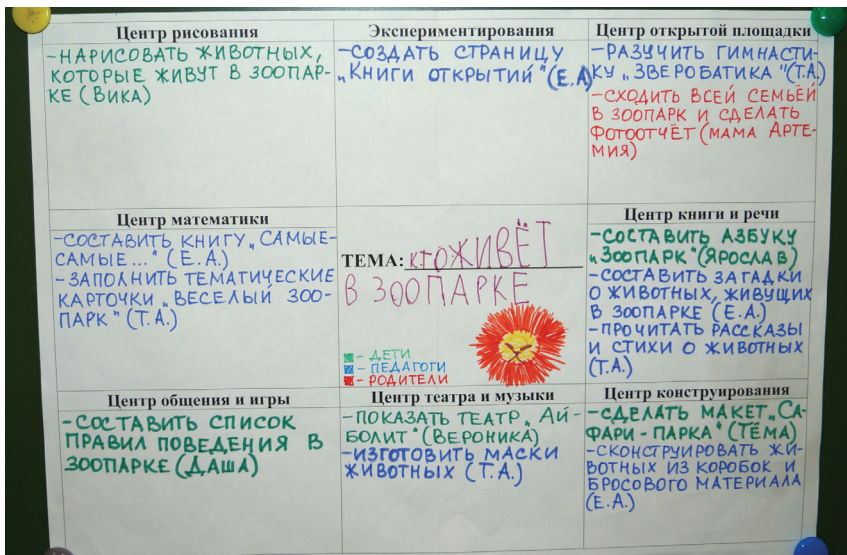 Центр рисования
-НАРИСОВАТЬ ЖИВОТНЫХ,
КОТОРЫЕ ЖИВУТ В ЗООПАР-
КЕ (ВИКА)
Экспериментирования
-СОЗДАТЬ СТРАНИЦУ
„КНИГИ ОТКРЫТИЙ" (Е.А)
Центр открытой площадки
-РАЗУЧИТЬ ГИМНАСТИ-
КУ „ЗВЕРОБАТИКА" (Т.А.)
-СХОДИТЬ ВСЕЙ СЕМЬЁЙ
В ЗООПАРК И СДЕЛАТЬ
ФОТООТЧЁТ (МАМА АРТЕ-
МИЯ)
Центр математики
-СОСТАВИТЬ КНИГУ „САМЫЕ-
САМЫЕ..." (Е.А.)
-ЗАПОЛНИТЬ ТЕМАТИЧЕСКИЕ
КАРТОЧКИ „ВЕСЕЛЫЙ ЗОО-
ПАРК" (Т.А.)
ТЕМА: КТО ЖИВЁТ
В ЗООПАРКЕ
- ДЕТИ
- ПЕДАГОГИ
- РОДИТЕЛИ
Центр книги и речи
-СОСТАВИТЬ АЗБУКУ
„ЗООПАРК" (ЯРОСЛАВ)
-СОСТАВИТЬ ЗАГАДКИ
О ЖИВОТНЫХ, ЖИВУЩИХ
В ЗООПАРКЕ (Е.А.)
-ПРОЧИТАТЬ РАССКАЗЫ
И СТИХИ О ЖИВОТНЫХ
(Т.А.)
Центр общения и игры
-СОСТАВИТЬ СПИСОК
ПРАВИЛ ПОВЕДЕНИЯ В
ЗООПАРКЕ (ДАША)
Центр театра и музыки
-ПОКАЗАТЬ ТЕАТР „АЙ-
БОЛИТ" (ВЕРОНИКА)
-ИЗГОТОВИТЬ МАСКИ
ЖИВОТНЫХ (Т.А.)
Центр конструирования
-СДЕЛАТЬ МАКЕТ „СА-
ФАРИ-ПАРКА" (ТЁМА)
-СКОНСТРУИРОВАТЬ ЖИ-
ВОТНЫХ ИЗ КОРОБОК И
БРОСОВОГО МАТЕРИАЛА
(Е.А.)